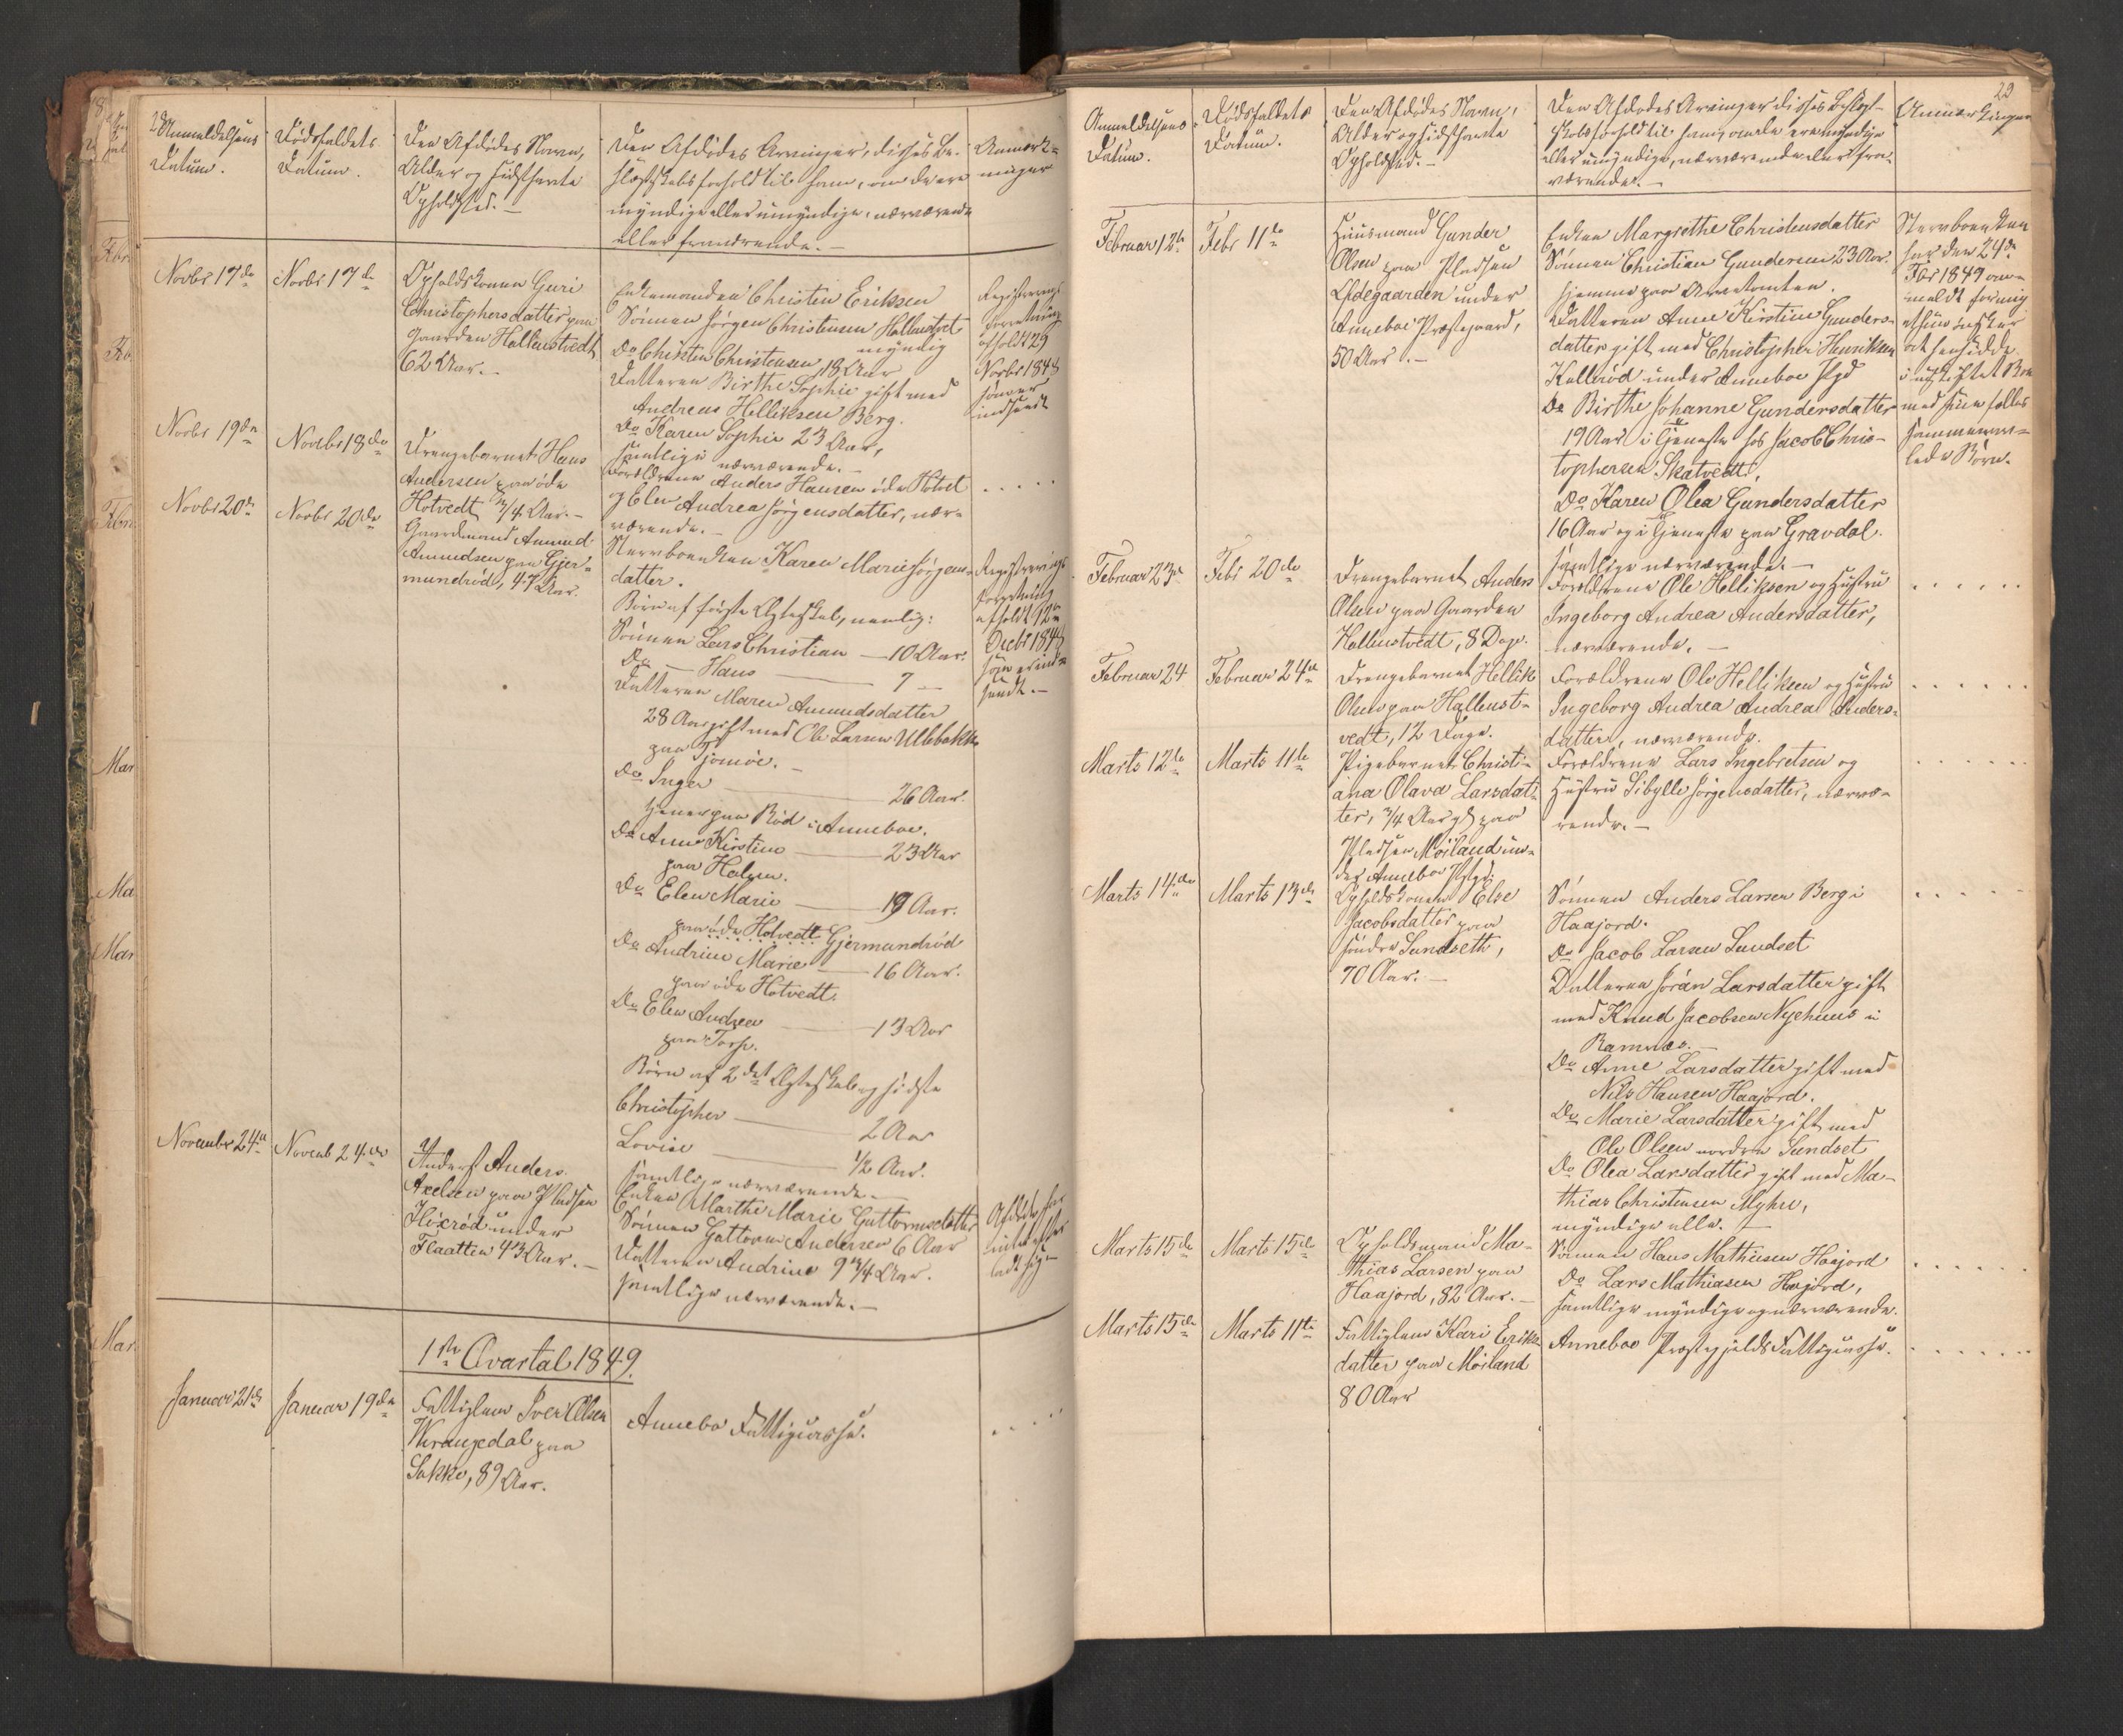 28
Anmeldelsens
Datum.
Dødsfaldets
Datum.
Den Afdødes Navn,
Alder og sidsthavte
Opholdsted.—
Den Afdødes Arvinger, disses Be-
slægtskabsforhold til ham, om de ere
myndige eller umyndige, nærværende
eller fraværende.—
Anmærk-
ninger
Novbr 17de
Novbr 17de
Opholdskonen Guri
Christophersdatter paa
Gaarden Hallenstvedt
62 Aar.—
Enkemanden Christen Eriksen
Sönnen Jørgen Christensen Hallenstvet
myndig
Do Christen Christensen, 18 Aar
Datteren Birthe Sophie gift med
Andreas Helliksen Berg.
Do Karen Sophie 23 Aar,
samtlige nærværende.—
Registrerings
forretning
afholdt 29
Novbr 1848
som er
indsendt
Novbr 19de
Novbr 18de
Drengebarnet Hans
Andersen paa øde
Hotvedt 3/4 Aar.—
Forældrene Anders Hansen øde Hotvet
og Elen Andrea Jørgensdatter, nær-
værende.—
. . . . .
Novbr 20de
Novbr 20de
Gaardmand Amund
Amundsen paa Gjer-
mundrød, 47 Aar.
Stervboenken Karen Marie Jørgens-
datter.
Børn af første Ægteskab, nemlig:
Sönnen Lars Christian — 10 Aar.
Do — Hans — 7 —
Datteren Maren Amundsdatter
28 Aar gift med Ole Larsen Ullebakke
paa Tjømöe.—
Do Inger — 26 Aar.
tjener paa Röd i Anneboe.
Do Anne Kirstine — 23 Aar
paa Holmen.
Do Elen Marie — 19 Aar.
paa øde Hotvedt Gjermundröd
Do Andrine Marie — 16 Aar.
paa øde Hotvedt.
Do Elen Andrea — 13 Aar
paa Torp.
Börn af 2det Ægteskab og sidste
Christopher — 2 Aar
Lovise — 1/2 Aar.
samtlige nærværende.—
Registrerings
forretning
afholdt 12te
Decbr 1848
som er ind-
sendt.—
November 24de
Novemb 24de
Inderst Anders
Axelsen paa Pladsen
under
Flaatten 43 Aar.—
Enken Marthe Marie Guttormsdatter
Sönnen Guttorm Andersen 6 Aar
Datteren Andrine 9 3/4 Aar.
samtlige nærværende.—
Afdøde har
intet efter
ladt sig
1ste Qvartal 1849.
Januar 21de
Januar 19de
Fattiglem Iver Olsen
Wrangedal paa
Sakke, 89 Aar.
Annebo Fattigcasse.
. . . .
29
Anmeldelsens
Datum.
Dødsfaldets
Datum.
Den Afdødes Navn,
Alder og sidsthavte
Opholdsted.—
Den Afdødes Arvinger disses Beslægt-
skabsforhold til ham, om de ere myndige
eller umyndige, nærværende eller fra-
værende.—
Anmærkninger
Februar 12te
Febr 11te
Huusmand Gunder
Olsen paa Pladsen
Ødegaarden under
Anneboe Præstegaard,
50 Aar.—
Enken Margrethe Christensdatter
Sönnen Christian Gundersen 23 Aar.
hjemme paa Arvetomten.
Datteren Anne Kirstine Gunders-
datter gift med Christopher Henriksen
Kullerød under Anneboe Pgd
Do Birthe Johanne Gundersdatter
19 Aar i Tjeneste hos Jacob Chris-
tophersen Skatvedt,
Do Karen Olea Gundersdatter
16 Aar og i Tjeneste paa Gravdal.
samtlige nærværende.—
Stervboenken
har den 24de
Fbr 1849 an-
meldt for mig
at hun ønsker
at hensidde
i uskiftet Bo
med sine fælles
sammenav-
lede Börn.
Februar 23de
Febr 20de
Drengebarnet Anders
Olsen paa Gaarden
Hallenstvedt, 8 Dage.
Forældrene Ole Helliksen og Hustru
Ingeborg Andrea Andersdatter,
nærværende.—
. . . . . .
Februar 24
Februar 24de
Drengebarnet Hellik
Olsen paa Hallenst-
vedt, 12 Dage.
Forældrene Ole Helliksen og Hustru
Ingeborg Andrea Andrea Anders-
datter, nærværende.
. . . . . .
Marts 12te
Marts 11te
Pigebarnet Christi-
ana Olava Larsdat-
ter, 3/4 Aar gl paa
Pladsen Möiland un-
der Anneboe Pgd.
Forældrene Lars Ingebretsen og
Hustru Sibylle Jørgensdatter, nærvæ-
rende.—
. . . . . .
Marts 14de
Marts 13de
Opholdskonen Else
Jacobsdatter paa
søndre Sundseth,
70 Aar.—
Sönnen Anders Larsen Berg i
Haajord.
Do Jacob Larsen Sundset
Datteren Jöran Larsdatter gift
med Knud Jacobsen Nyehuus i
Ramnæs.—
Do Anne Larsdatter gift med
Nils Hansen Haajord.
Do Marie Larsdatter gift med
Ole Olsen nordre Sundset
Do Olea Larsdatter gift med Ma-
thias Christensen Myhre,
myndige alle.—
. . . .
Marts 15de
Marts 15de
Opholdsmand Ma-
thias Larsen paa
Haajord, 82 Aar.—
Sönnen Hans Mathiesen Haajord
Do Lars Mathiasen Haajord,
samtlige myndige og nærværende.
. . . . . .
Marts 15de
Marts 11te
Fattiglem Kari Eriks-
datter paa Möiland
80 Aar
Anneboe Præstegjelds Fattigcasse.
. . . . . .